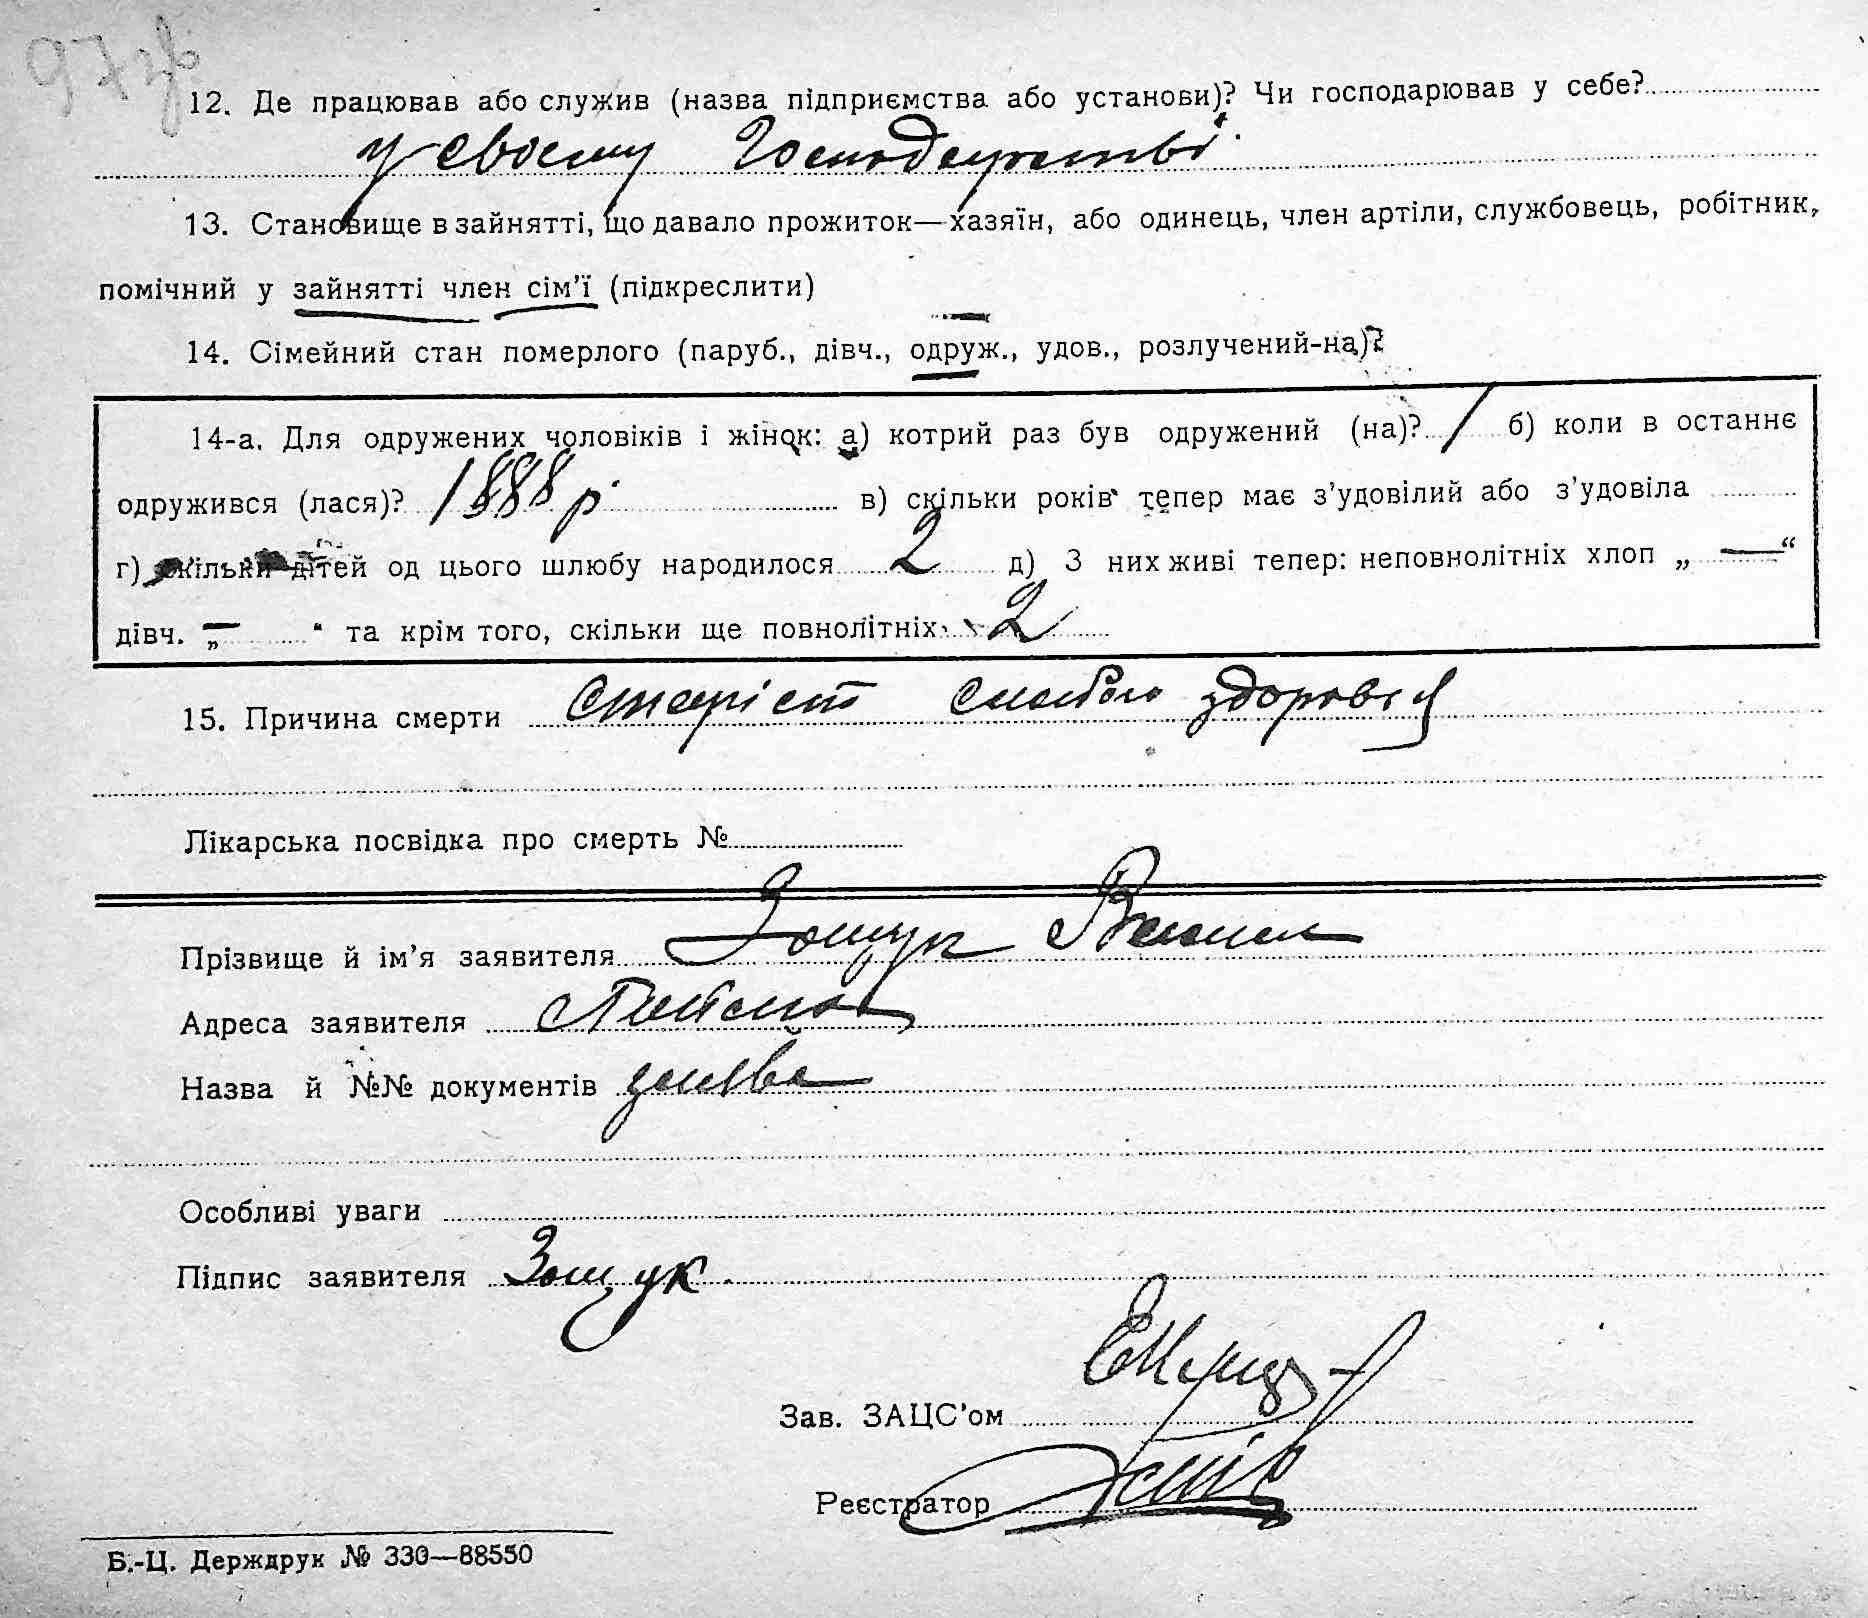 97зв
12. Де працював або служив (назва підприємства або установи)? Чи господарював у себе?
у своєму Господарстві
13. Становище в зайнятті, що давало прожиток—хазяїн, або одинець, член артіли, службовець, робітник,
помічний у зайнятті член сім'ї (підкреслити)
14. Сімейний стан померлого (паруб., дівч., одруж., удов., розлучений-на)?
14-а. Для одружених чоловіків і жінок: а) котрий раз був одружений (на)? 1 б) коли в останнє
одружився (лася)? 1888 р. в) скільки років тепер має з'удовілий або з'удовіла
г) скільки дітей од цього шлюбу народилося 2 д) З них живі тепер: неповнолітніх хлоп „ — “
дівч. „ — “ та крім того, скільки ще повнолітніх 2
15. Причина смерти старіст слабого здоровя
Лікарська посвідка про смерть №
Прізвище й ім'я заявителя Зощук Василь
Адреса заявителя
Назва й №№ документів заява
Особливі уваги
Підпис заявителя Зощук
Зав. ЗАЦС'ом
Реєстратор
Б.-Ц. Держдрук № 330—88550